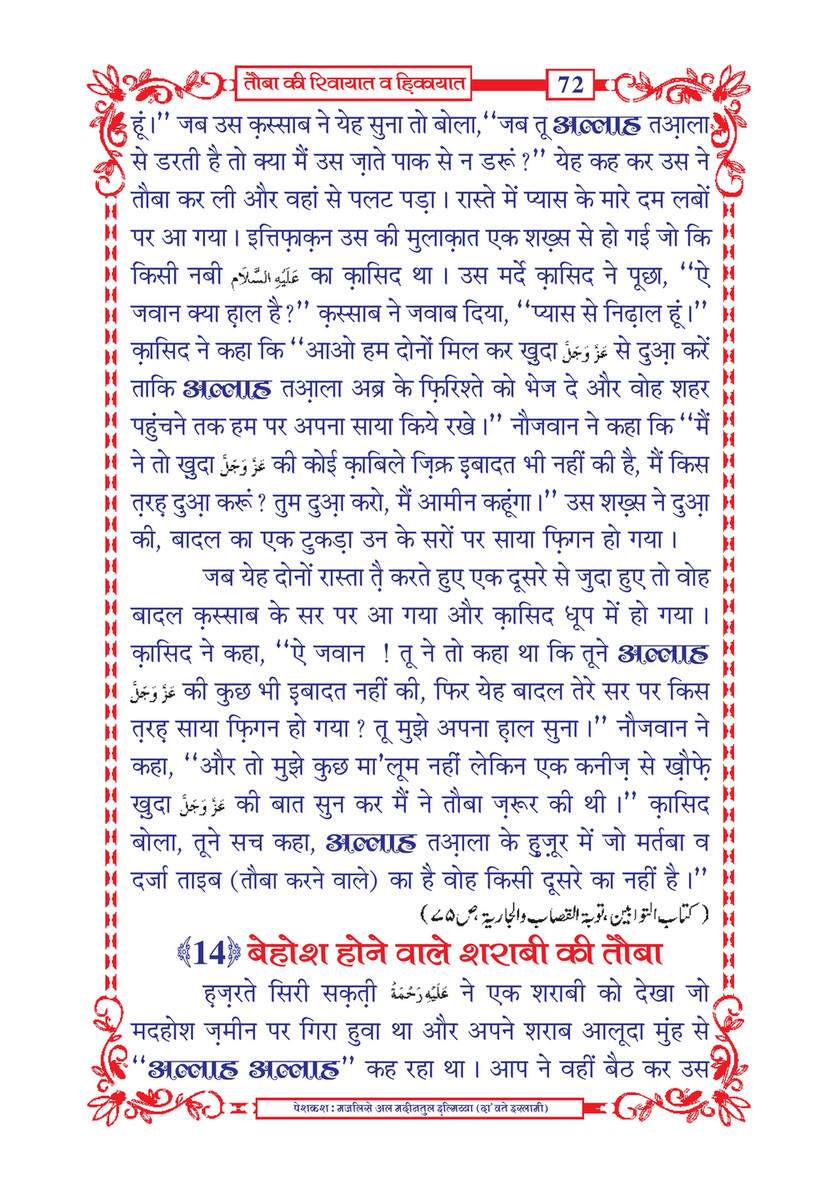 तौबा की रिवायात व हिकायात 72
हूं।'' जब उस क़स्साब ने येह सुना तो बोला,''जब तू अल्लाह तआ़ला
से डरती है तो क्या मैं उस ज़ाते पाक से न डरूं ?'' येह कह कर उस ने
तौबा कर ली और वहां से पलट पड़ा । रास्ते में प्यास के मारे दम लबों
पर आ गया । इत्तिफ़ाक़न उस की मुलाक़ात एक शख़्स से हो गई जो कि
किसी नबी عَلَيْهِ السَّلَام का क़ासिद था । उस मर्दे क़ासिद ने पूछा, ''ऐ
जवान क्या ह़ाल है?'' क़स्साब ने जवाब दिया, ''प्यास से निढ़ाल हूं।''
क़ासिद ने कहा कि ''आओ हम दोनों मिल कर ख़ुदा عَزَّ وَجَلَّ से दुआ़ करें
ताकि अल्लाह तआ़ला अब्र के फ़िरिश्ते को भेज दे और वोह शहर
पहुंचने तक हम पर अपना साया किये रखे ।'' नौजवान ने कहा कि ''मैं
ने तो ख़ुदा عَزَّ وَجَلَّ की कोई क़ाबिले ज़िक्र इ़बादत भी नहीं की है, मैं किस
त़रह़ दुआ़ करूं ? तुम दुआ़ करो, मैं आमीन कहूंगा ।'' उस शख़्स ने दुआ़
की, बादल का एक टुकड़ा उन के सरों पर साया फ़िगन हो गया ।
जब येह दोनों रास्ता त़ै करते हुए एक दूसरे से जुदा हुए तो वोह
बादल क़स्साब के सर पर आ गया और क़ासिद धूप में हो गया ।
क़ासिद ने कहा, ''ऐ जवान ! तू ने तो कहा था कि तूने अल्लाह
عَزَّ وَجَلَّ की कुछ भी इ़बादत नहीं की, फिर येह बादल तेरे सर पर किस
त़रह़ साया फ़िगन हो गया ? तू मुझे अपना ह़ाल सुना ।'' नौजवान ने
कहा, ''और तो मुझे कुछ मा'लूम नहीं लेकिन एक कनीज़ से ख़ौफ़े
ख़ुदा عَزَّ وَجَلَّ की बात सुन कर मैं ने तौबा ज़रूर की थी ।'' क़ासिद
बोला, तूने सच कहा, अल्लाह तआ़ला के हुज़ूर में जो मर्तबा व
दर्जा ताइब (तौबा करने वाले) का है वोह किसी दूसरे का नहीं है ।''
(کتاب التوابین، توبۃ القصاب والجاریۃ، ص۷۵)
﴾14﴿ बेहोश होने वाले शराबी की तौबा
ह़ज़रते सिरी सक़त़ी عَلَيْهِ رَحْمَةُ ने एक शराबी को देखा जो
मदहोश ज़मीन पर गिरा हुवा था और अपने शराब आलूदा मुंह से
''अल्लाह अल्लाह'' कह रहा था । आप ने वहीं बैठ कर उस
पेशकश : मजलिसे अल मदीनतुल इ़ल्मिय्या (दा'वते इस्लामी)